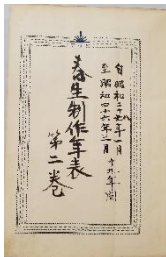 自昭和二十七年一月
至昭和四十六年三月
十九年間
春生制作年表
第二巻